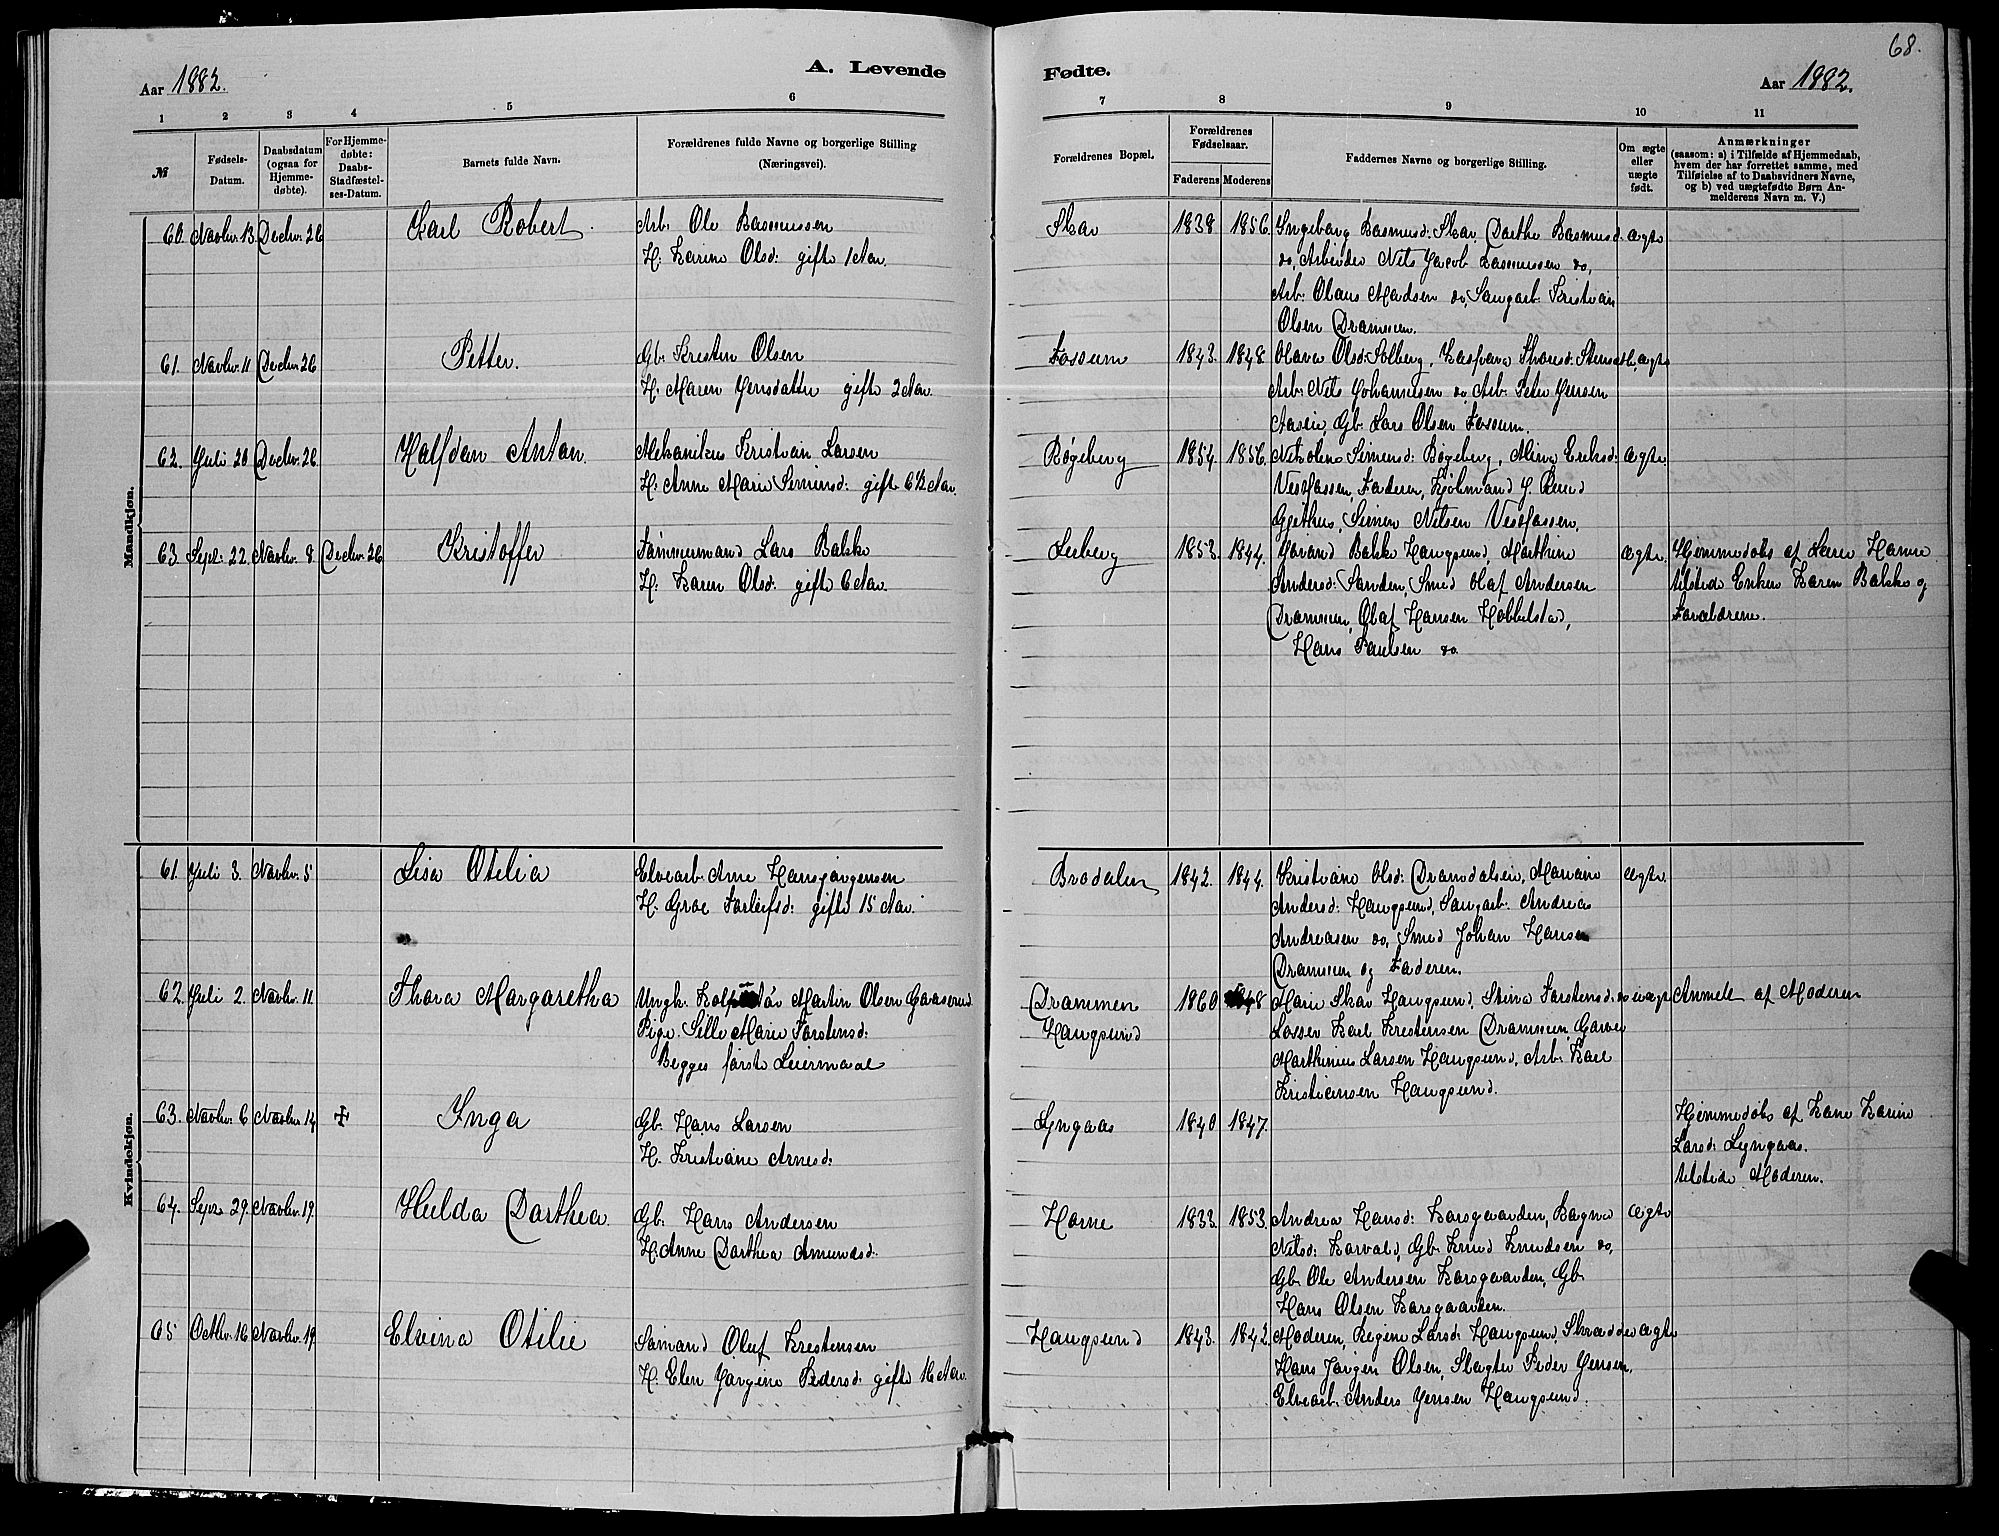 68.
Aar 1882.
A. Levende Fødte.
Aar 1882.
1 2 3 4 5 6 7 8 9 10 11
№
Fødsels-Datum.
Daabsdatum (ogsaa for Hjemme-døbte).
For Hjemme-døbte: Daabs-Stadfæstel-ses-Datum.
Barnets fulde Navn.
Forældrenes fulde Navne og borgerlige Stilling
(Næringsvei).
Forældrenes Bopæl.
Forældrenes Fødselsaar.
Faderens Moderens
Faddernes Navne og borgerlige Stilling.
Om ægte eller uægte født.
Anmærkninger
(saasom: a) i Tilfælde af Hjemmedaab,
hvem der har forrettet samme, med
Tilføielse af to Daabsvidners Navne,
og b) ved uægtefødte Børn An-
melderens Navn m. V.)
Mandkjøn.
60. Novbr. 13 Decbr. 26 Carl Robert. Arb. Ole Rasmussen Skar 1838 1856. Ingeborg Rasmusd: Skar, Dorthe Rasmusd. ægte
H: Karine Olsd: gifte 1 Aar. do, Arbeider Nils Jacob Rasmussen do,
Arb: Olaus Madsen do, Saugarb. Kristian
Olsen Drammen.
61. Novbr. 11 Decbr. 26 Petter. Gb. Kristen Olsen Fossum 1843. 1848. Olava Olsd: Solberg, Kaspara Thoresd: ægte
H. Maren Jensdatter gifte 2 Aar. Arb. Nils Johannesen do, Arb. Peter Jensen
Aasen, Gb. Lars Olsen Fossum.
62. Juli 20 Decbr. 26 Halfdan Anton. Mekanikus Kristian Larsen Røgeberg 1854. 1856. Nikoline Simensd: Røgeberg, Mina Eriksd: ægte.
H: Anne Marie Simensd: gifte 6½ Aar. Faderen, J. Ruud
Gjethus, Simen Nilsen
63 Sepr: 22. Novbr. 8 Decbr. 26 Kristoffer Tømmermand Lars Bakke Leeberg 1853. 1844. Gorand Bakke Haugsund, Marthine ægte. Hjemmedøbt af Lærer Horne
H: Karen Olsd: gifte 6 Aar. Andersd: Sanden, Smed Olaf Andersen tilstede Enken Karen Bakke og
Drammen, Olaf Hansen Hobbelstad, Forældrene.
Hans Paulsen do.
Kvindekjøn.
61. Juli 3. Novbr. 5 Lisa Otilia Elvearb. Arne Hansjørgensen Brodalen 1842. 1844. Kristiane Olsd: Dramdalsein, Mariane ægte.
H. Groe Torleifsd: gifte 15 Aar. Andersd: Haugsund, Saugarb. Andreas
Andreasen do, Smed Johan Hansen
Drammen og Faderen.
62. Juli 2. Novbr. 11 Thora Margaretha Ungk. Martin Olsen Gaaserud Drammen 1860 48 Marie Skar Haugsund, Stina Torstensd: do uægt. Anmeldt af Moderen
Pige. Sille Marie Torstensd: Haugsund Losser Karl Kristensen Drammen, Garver
Begges første Leiermaal Marthinius Larsen Haugsund, Arb. Karl
Kristiansen Haugsund.
63. Novbr. 6 Novbr. 14 ‡ Inga Gb. Hans Larsen Lyngaas 1840 1847. Hjemmedøbt af Kone Karine
H. Kristiane Arnesd: Larsd: Lyngaas.
tilstede Moderen.
64. Sepr 29. Novbr. 19. Hulda Dorthea. Gb. Hans Andersen Horne 1833. 1853. Andrea Hansd: Korsgaarden, Ragne ægte
H. Anne Dorthea Amundsd: Nilsd: Gb. Knud Knudsen do,
Gb. Ole Andersen Korsgaarden, Gb.
Hans Olsen Korsgaarden.
65 Octbr. 16 Novbr. 19. Elvina Otilie Sømand Oluf Kristensen Haugsund 1843. 1842. Moderen, Regine Larsd: Haugsund, Skrædder ægte
H. Elen Jørgine Pedersd: gifte 16 Aar. Hans Jørgen Olsen, Slagter Peder Jensen,
Elvearb. Anders Jensen Haugsund.